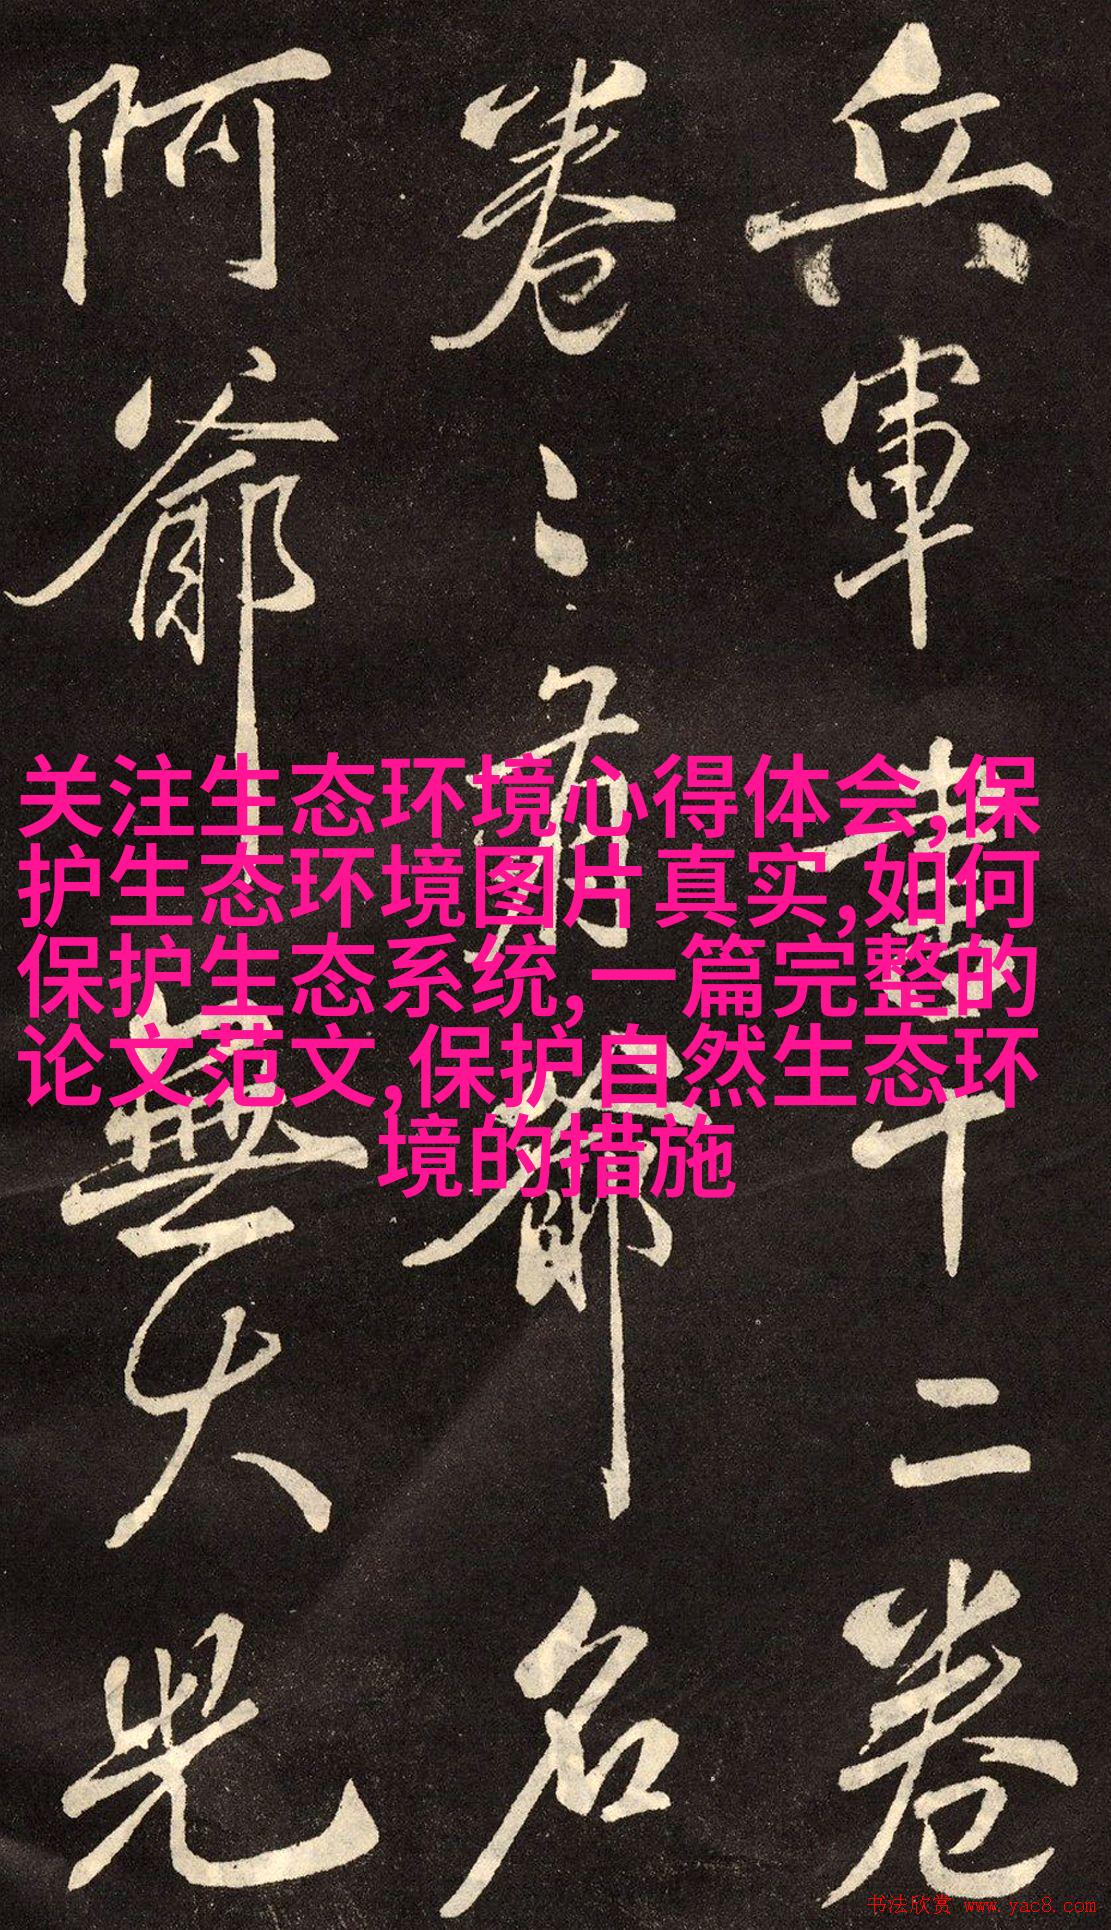 兵軍書十二卷
卷〻有爺名
阿爺無大兒
关注生态环境心得体会,保
护生态环境图片真实,如何
保护生态系统,一篇完整的
论文范文,保护自然生态环
境的措施
书法欣赏 www.yac8.com